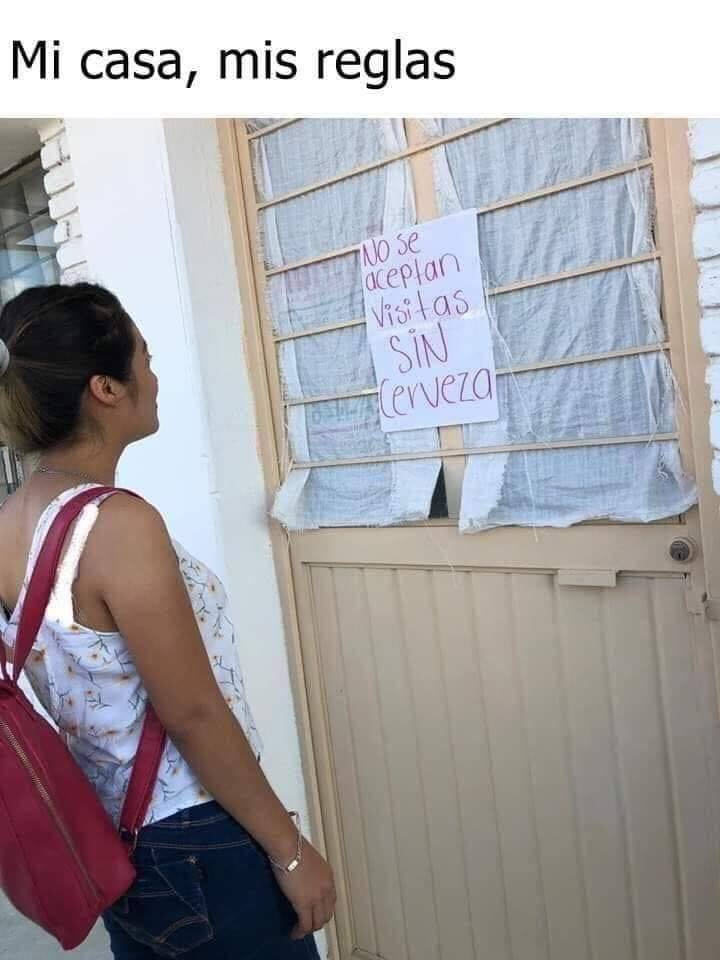 Mi casa, mis reglas
No se
aceptan
visitas
SIN
cerveza